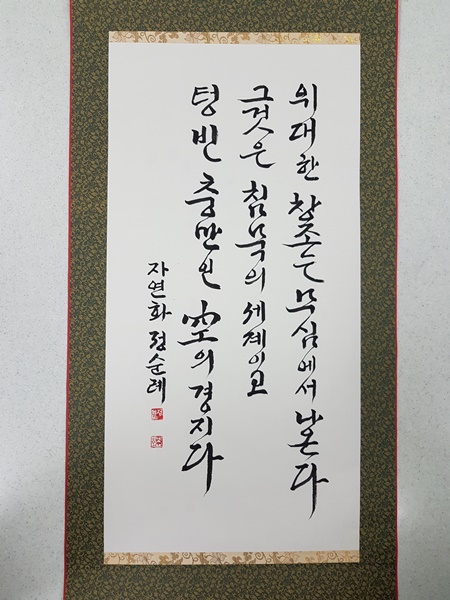 위대한 창조는 무심에서 나온다
그것은 침묵의 세계이고
텅 빈 충만인 空의 경지다
자연화 정순례